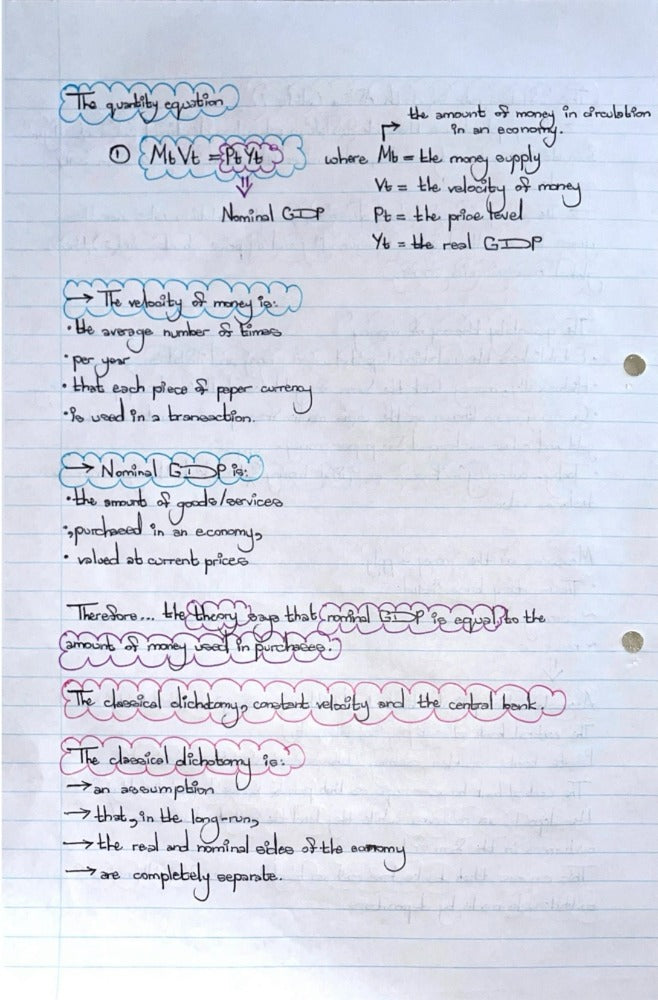 The quantity equation
the amount of money in circulation
in an economy.
① MtVt = PtYt where Mt = the money supply
Vt = the velocity of money
Nominal GDP Pt = the price level
Yt = the real GDP
→ The velocity of money is:
• the average number of times
• per year
• that each piece of paper currency
• is used in a transaction.
→ Nominal GDP is:
• the amount of goods/services
•, purchased in an economy,
• valued at current prices
Therefore... the theory says that nominal GDP is equal to the
amount of money used in purchases.
The classical dichotomy, constant velocity and the central bank.
The classical dichotomy is:
→ an assumption
→ that, in the long-run,
→ the real and nominal sides of the economy
→ are completely separate.